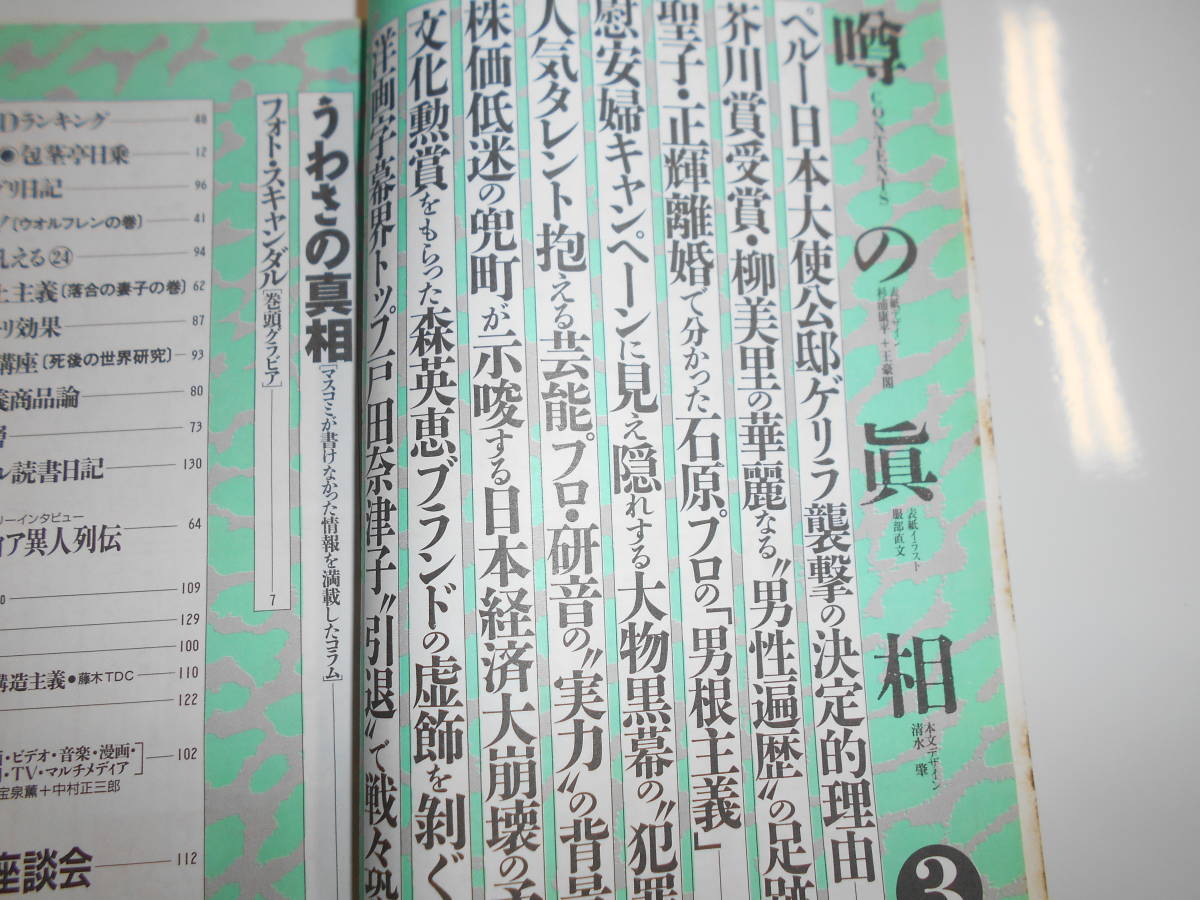 噂の眞相
CONTENTS
表紙デザイン
杉浦康平+王豪閣
表紙イラスト
服部直文
本文デザイン
清水 肇
3
ペルー日本大使公邸ゲリラ襲撃の決定的理由
芥川賞受賞・柳美里の華麗なる“男性遍歴”の足跡
聖子・正輝離婚で分かった石原プロの「男根主義」
慰安婦キャンペーンに見え隠れする大物黒幕の“犯罪
人気タレント抱える芸能プロ・研音の“実力”の背景
株価低迷の兜町が示唆する日本経済大崩壊の予
文化勲賞をもらった森英恵ブランドの虚飾を剝ぐ
洋画字幕界トップ戸田奈津子“引退”で戦々恐
うわさの真相[マスコミが書けなかった情報を満載したコラム]
フォト・スキャンダル[巻頭グラビア] 7
Dランキング 48
●包茎亭日乗 12
グリ日記 96
[ウオルフレンの巻] 41
吼える㉔ 94
主義[落合の妻子の巻] 62
リ効果 87
講座[死後の世界研究] 93
商品論 80
73
ル読書日記 130
リーインタビュー
ィア異人列伝 64
109
129
100
構造主義●藤木TDC 110
122
・ビデオ・音楽・漫画・
・TV・マルチメディア] 102
宝泉薫+中村正三郎
座談会 112